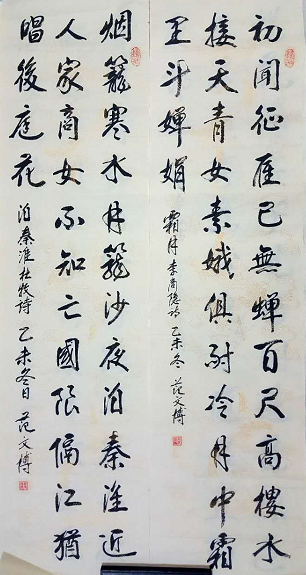 初聞征雁已無蟬百尺高樓水
接天青女素娥俱耐冷月中霜
里斗嬋娟 霜月李商隱詩 乙未冬 范文博
烟籠寒水月籠沙夜泊秦淮近
人家商女不知亡國恨隔江猶
唱後庭花 泊秦淮杜牧詩 乙未冬日 范文博